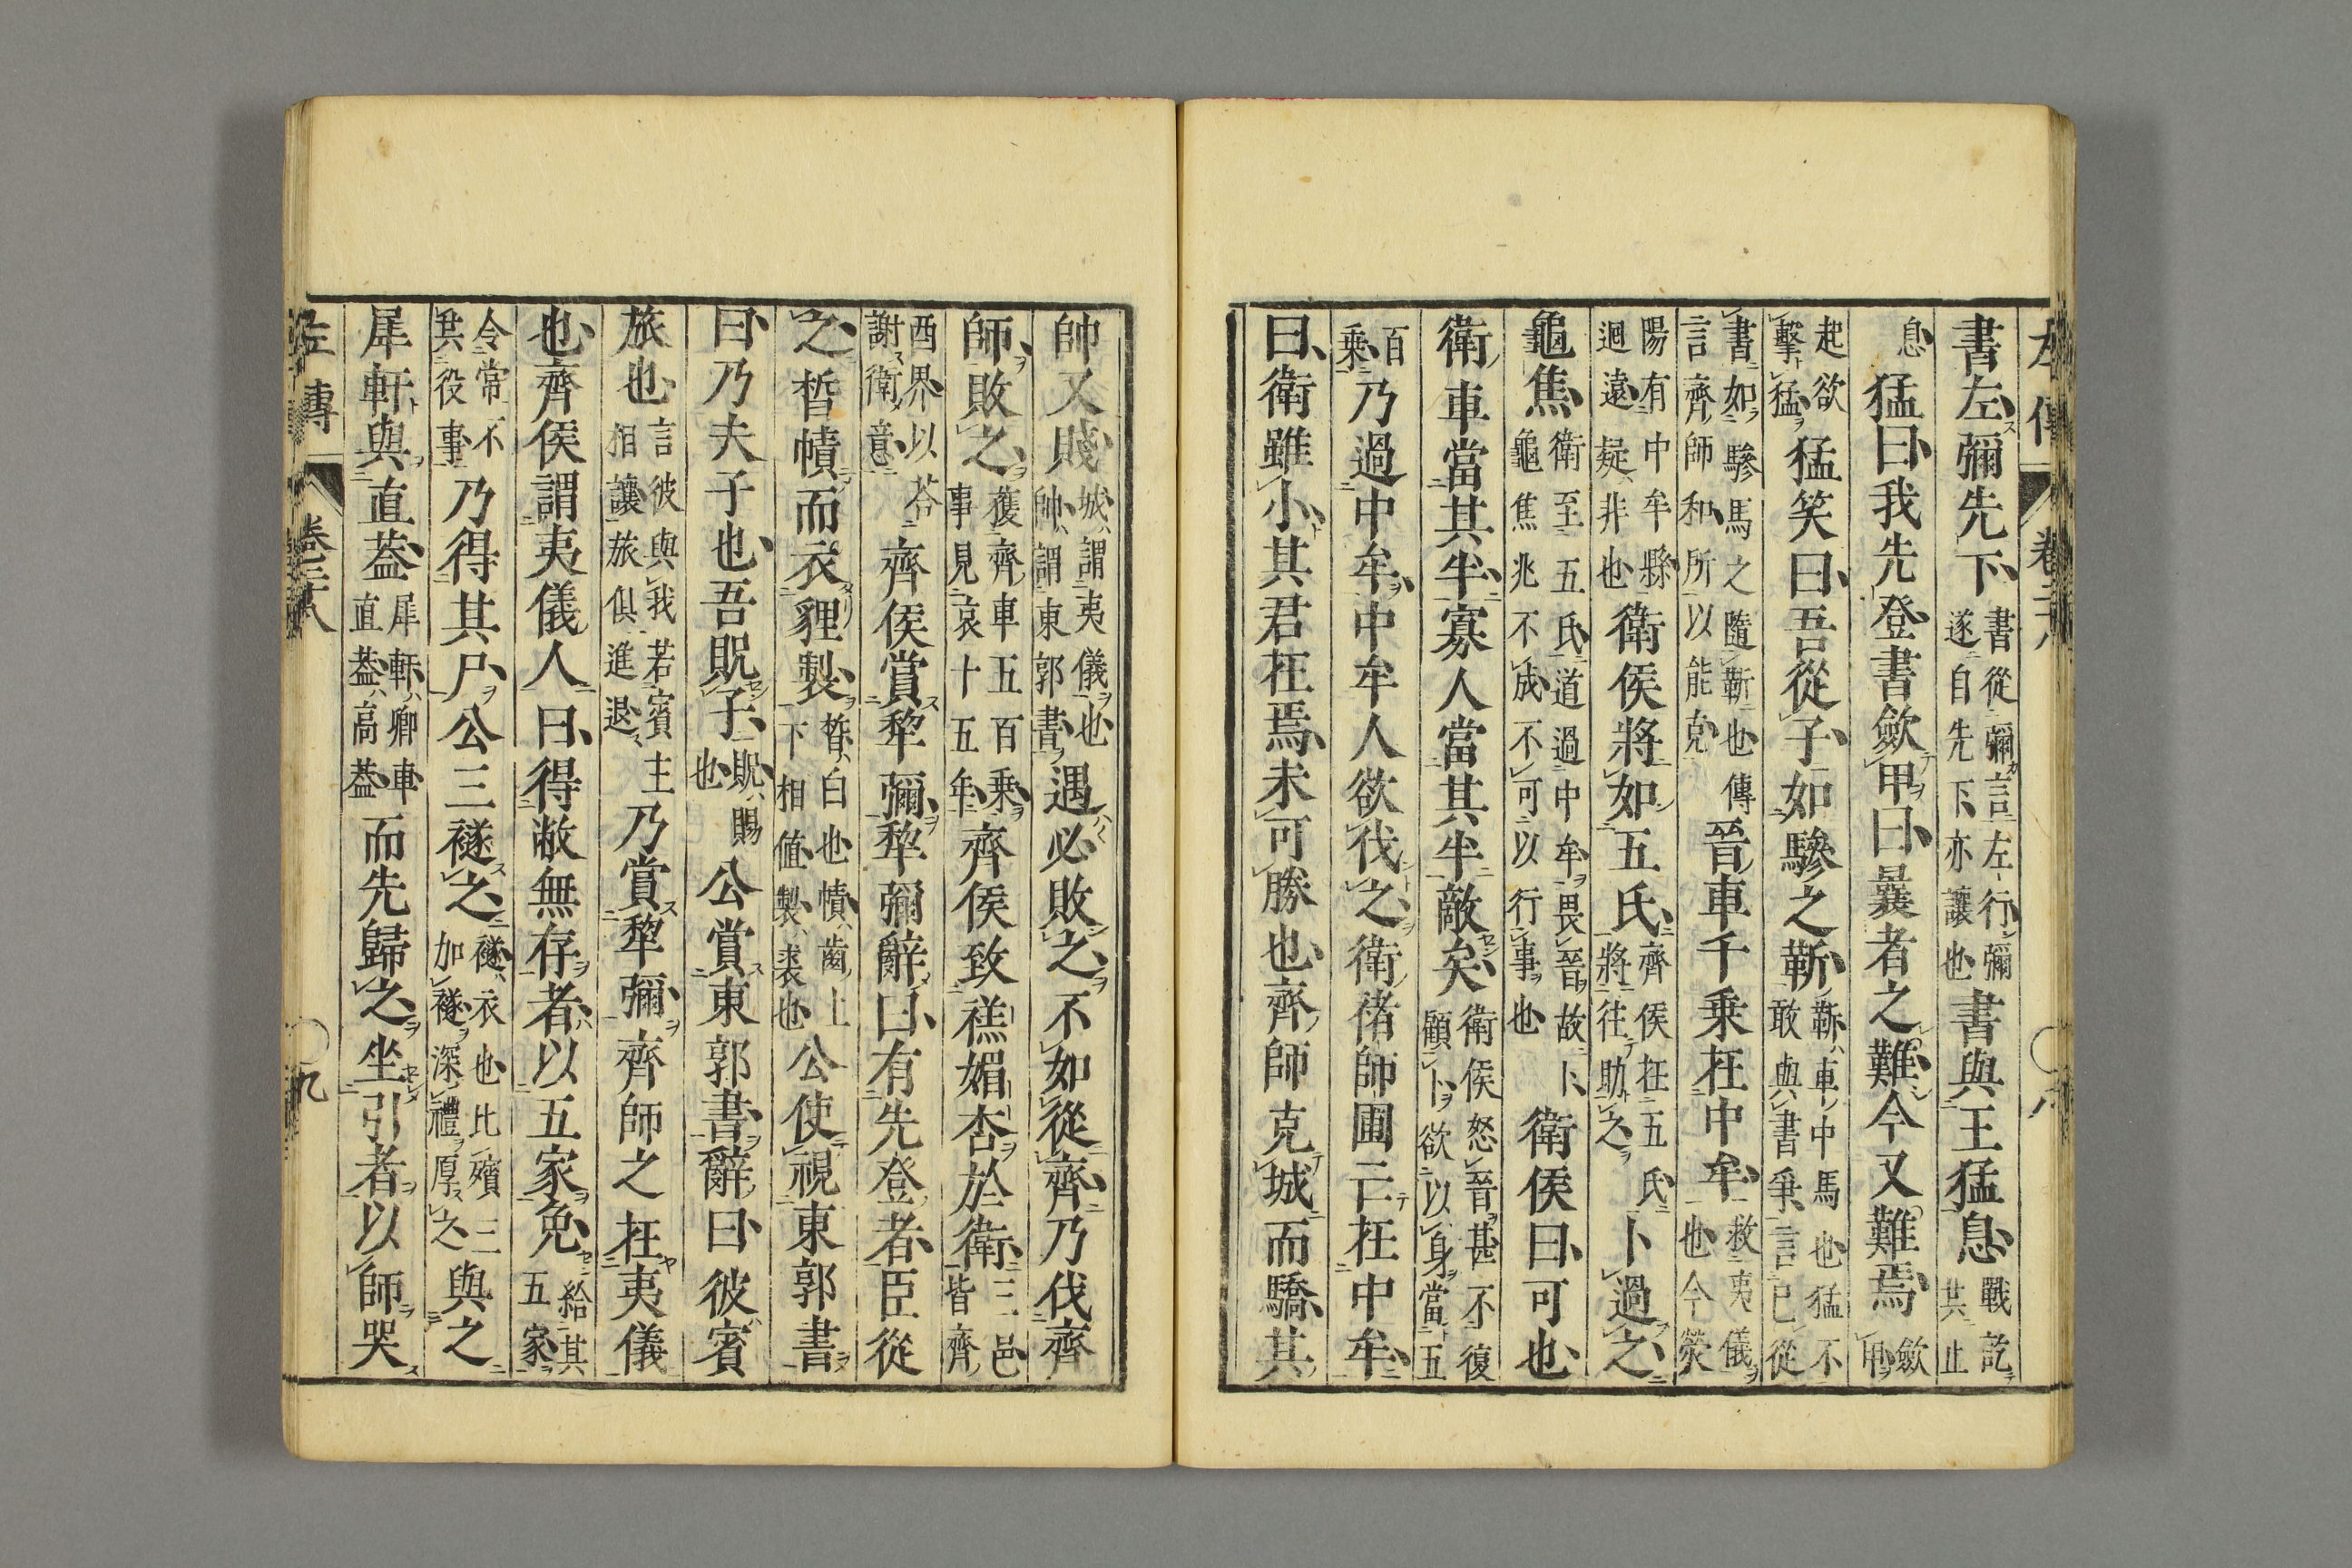 左傳 卷二十八 〇八
書左彌先下書從彌言左行彌遂自先下亦讓也書與王猛息戰訖其止
息猛曰我先登書斂甲曰曩者之難今又難焉斂甲
起欲擊猛猛笑曰吾從子如驂之靳靳車中馬也猛不敢與書爭言已從
書如驂馬之隨靳也傳言齊師和所以能克晉車千乘在中牟救夷儀也今滎
陽有中牟縣迴遠疑非也衛侯將如五氏齊侯在五氏將往助之卜過之
龜焦衛至五氏道過中牟畏晉故卜龜焦兆不成不可以行事也衛侯曰可也
衛車當其半寡人當其半敵矣衛侯怒晉甚不復顧卜欲以身當五
百乘乃過中牟中牟人欲伐之衛褚師圃亡在中牟
曰衛雖小其君在焉未可勝也齊師克城而驕其
帥又賤城謂夷儀也帥謂東郭書遇必敗之不如從齊乃伐齊
師敗之獲齊車五百乘事見哀十五年齊侯致禚媚杏於衛三邑皆齊
西界以荅謝衛意齊侯賞犂彌犂彌辭曰有先登者臣從
之晳幘而衣貍製晳白也幘齒上下相値製裘也公使視東郭書
曰乃夫子也吾貺子貺賜也公賞東郭書辭曰彼賓
旅也言彼與我若賓主相讓旅俱進退乃賞犂彌齊師之在夷儀
也齊侯謂夷儀人曰得敝無存者以五家免給其五家
令常不共役事乃得其尸公三襚之襚衣也比殯三加襚深禮厚之與之
犀軒與直葢犀軒卿車直葢高葢而先歸之坐引者以師哭
左傳 卷二十八 〇九